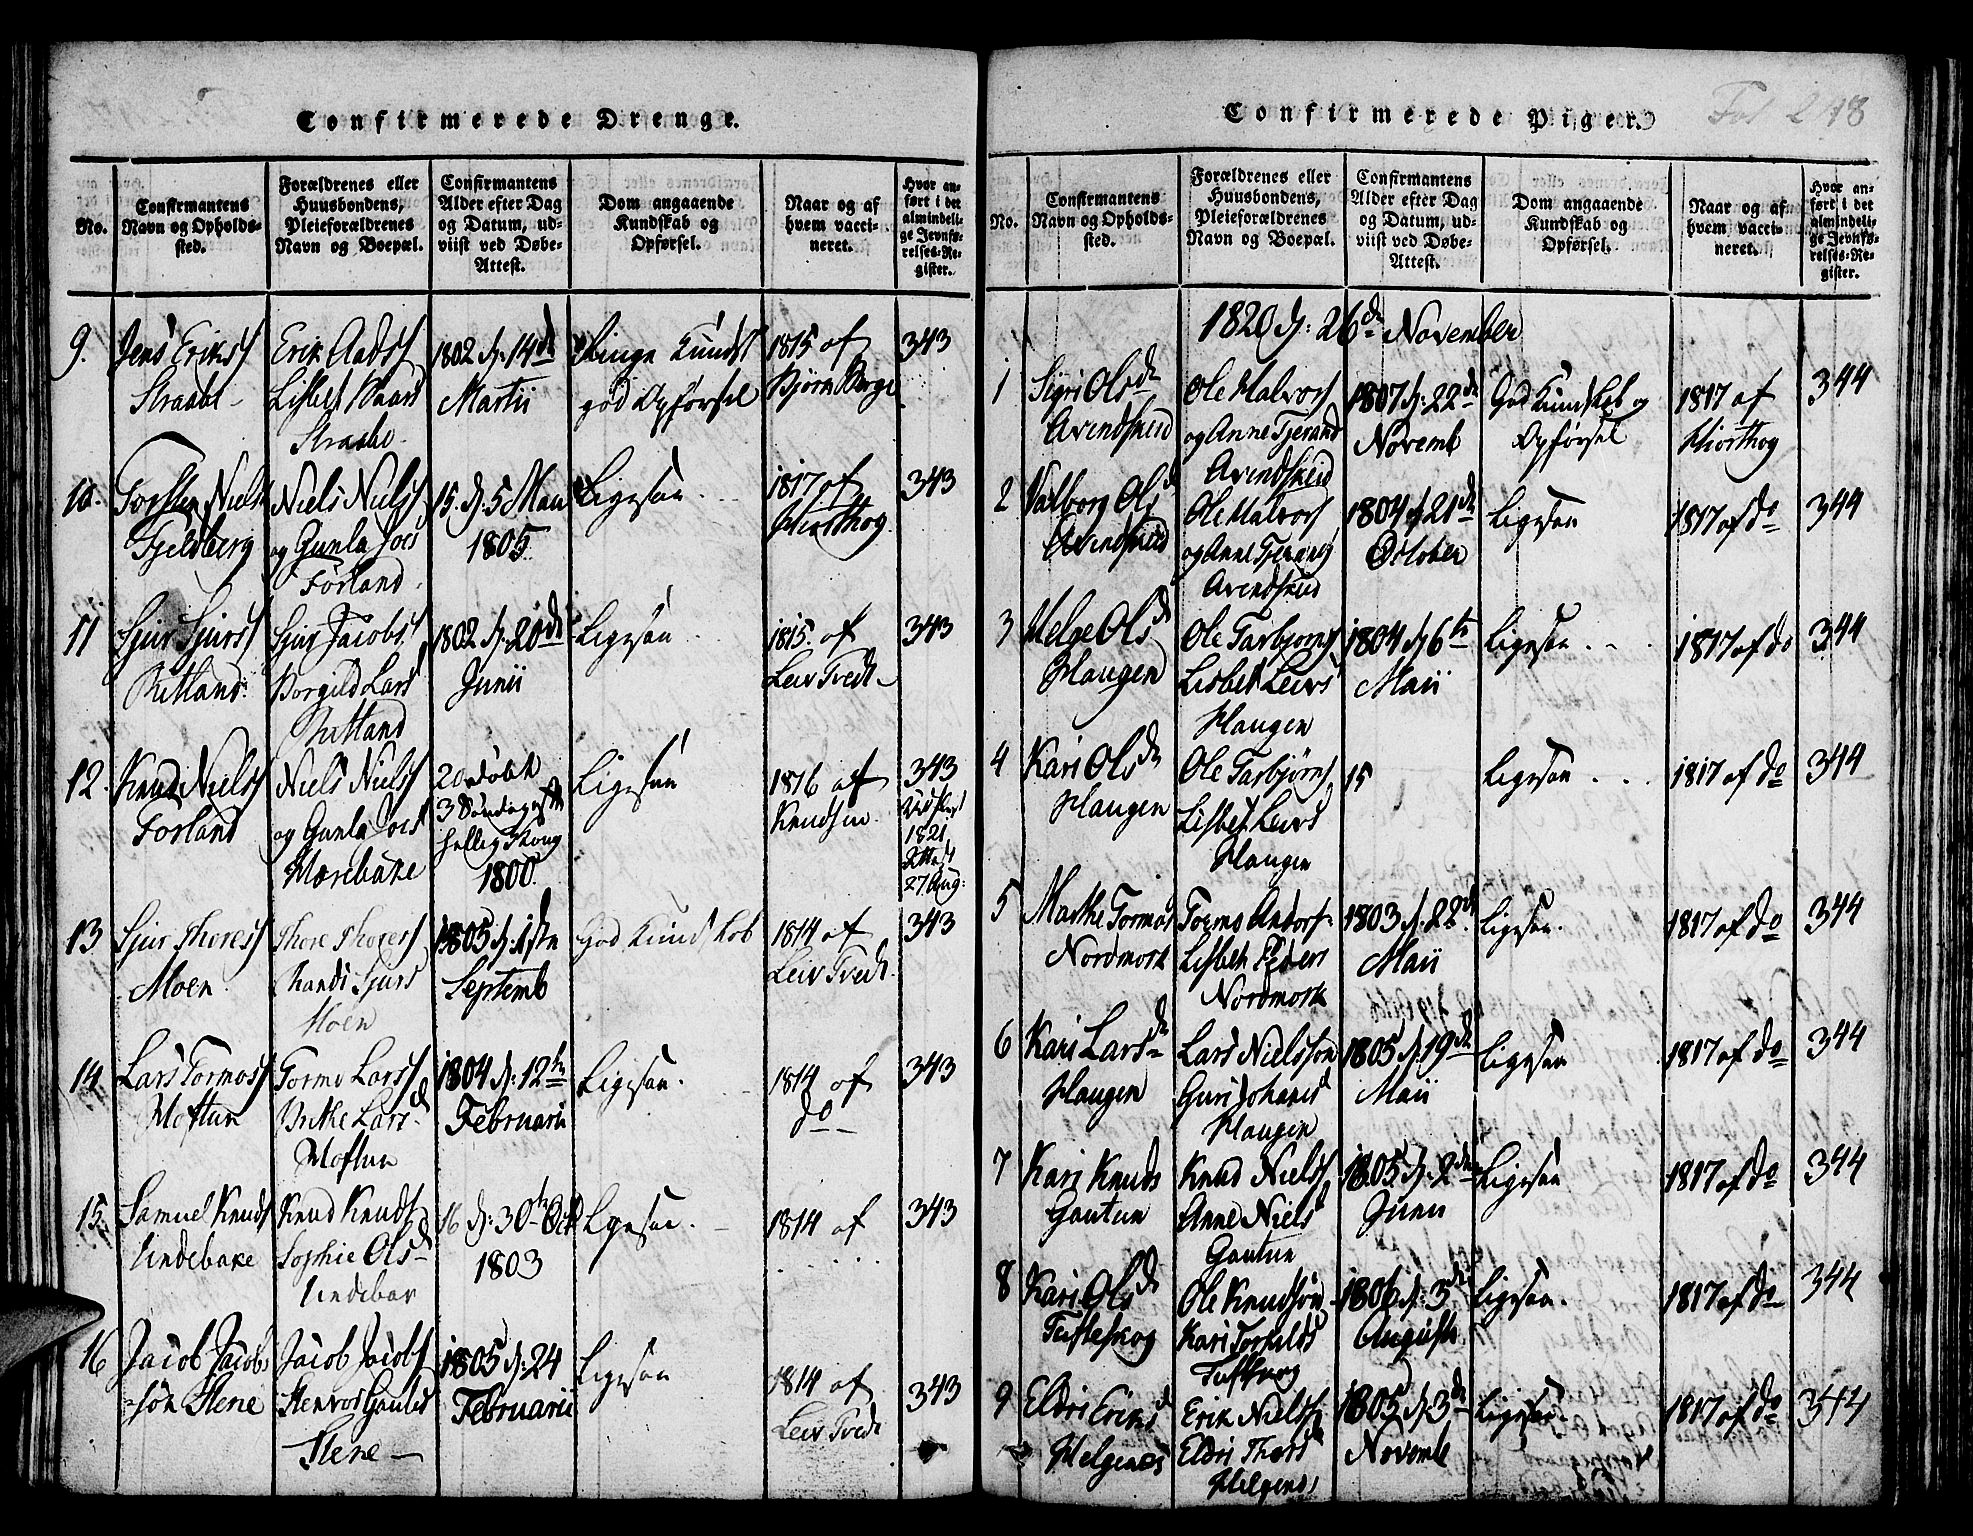 Confirmerede Drenge.
No.
Confirmantens
Navn og Opholds-
sted.
Forældrenes eller
Huusbondens,
Pleieforældrenes
Navn og Boepæl.
Confirmantens
Alder efter Dag
og Datum, ud-
viist ved Døbe-
Attest.
Dom angaaende
Kundskab og
Opførsel.
Naar og af
hvem vacci-
neret.
Hvor an-
ført i det
almindeli-
ge Jevnfø-
relses-Re-
gister.
9.
Jens Erikss
Straabe
Erik Aads
Lisbet
Straabe
1802 d: 14de
Martii
Ringe Kundsk
god Opførsel
1815 af
Bjørn Berge
343
10.
Torsten Niels
Fjeldberg
Niels Nielss
og Gunla Joes
Førland
15. d. 5 Mau
1805.
Ligesaa
1817 af
Hiorthog
343
11
Sjur Sjurss
Ritland
Sjur Jacobs
Borgild Lars
Ritland
1802 d. 20de
Junii
Ligesaa
1815 af
Leiv Tvedt
343
12.
Knud Nielss
Førland
Niels Nielss
og Gunla Joes
Mærebake
20 døbt
3 Søndag efter
hellig 3 kong
1800
Ligesaa
1816 af
Knudsen
343
1821
Attest
27 Aug:
13
Sjur Thoress
Moen
Thore Thoress
Randi Sjurs
Moen
1805 d: 1ste
Septemb
God Kundskab
1814 af
Leiv Tvedt.
343
14
Lars Tormoss
Moftun
Tormo Larss
Britke Larsd
Moftun
1804 d: 12te
Februarii
Ligesaa.
1814 af
do
343
15.
Samuel Knuds
Lindebake
Knud Knuds
Sophie Olsd
Lindebak
16 d: 30te Oct
1803
Ligesaa.
1814 af
343
16
Jacob Jacob-
søn Stene
Jacob Jacobs
Stenvor Gautes
Stene
1805 d: 24
Februarii
Ligesaa
1814 af
Leiv Tvedt
343
Confirmerede Piger.
Fol 248
No.
Confirmantens
Navn og Opholds-
sted.
Forældrenes eller
Huusbondens,
Pleieforældrenes
Navn og Boepæl.
Confirmantens
Alder efter Dag
og Datum, ud-
viist ved Døbe-
Attest.
Dom angaaende
Kundskab og
Opførsel.
Naar og af
hvem vacci-
neret.
Hvor an-
ført i det
almindeli-
ge Jevnfø-
relses-Re-
gister.
1820 d: 26de November
1
Sigri Olsdr
Arendskud
Ole Halvors
og Anne Tjerand
Arendskud
1807 d: 22de
Novemb
God Kundskab og
Opførsel
1817 af
Hiorthog
344
2
Valborg Olsd
Arendskud
Ole Halvors
og Anne Tjerands
Arendskud
1804 d 21de
October
Ligesaa
1817 af do
344
3
Helge Olsd
Haugen
Ole Tarbjørns
Lisbet Leivs
Haugen
1804 d 6te
Maii
Ligesaa
1817 af do
344
4
Kari Olsdr
Haugen
Ole Tarbjørns
Lisbet Leivs
Haugen
15
Ligesaa
1817 af do
344
5
Marthe Tormos
Nordmork
Tormo Andors
Lisbet Peders
Nordmork
1803 d: 22de
Maii
Ligesaa.
1817 af do
344
6
Kari Larsdr
Haugen
Lars Nielssøn
Guri Johanesd
Haugen
1805 d. 19de
Maii
Ligesaa
1817 af do
344
7
Kari Knuds
Gautun
Knud Nielss
Anne Nielsd
Gautun
1805 d: 2den
Junii
Ligesaa
1817 af do
344
8
Kari Olsdr
Tufteskog
Ole Knudsøn
Kari Torkelds
Tufteskog
1806 d: 3de
Augusti
Ligesaa.
1817 af do
344
9
Eldri Eriksd
Helgenes
Erik Nielss
Eldri Thorsd
Helgenes
1805 d 3de
Novemb
Ligesaa.
1817 af do
344